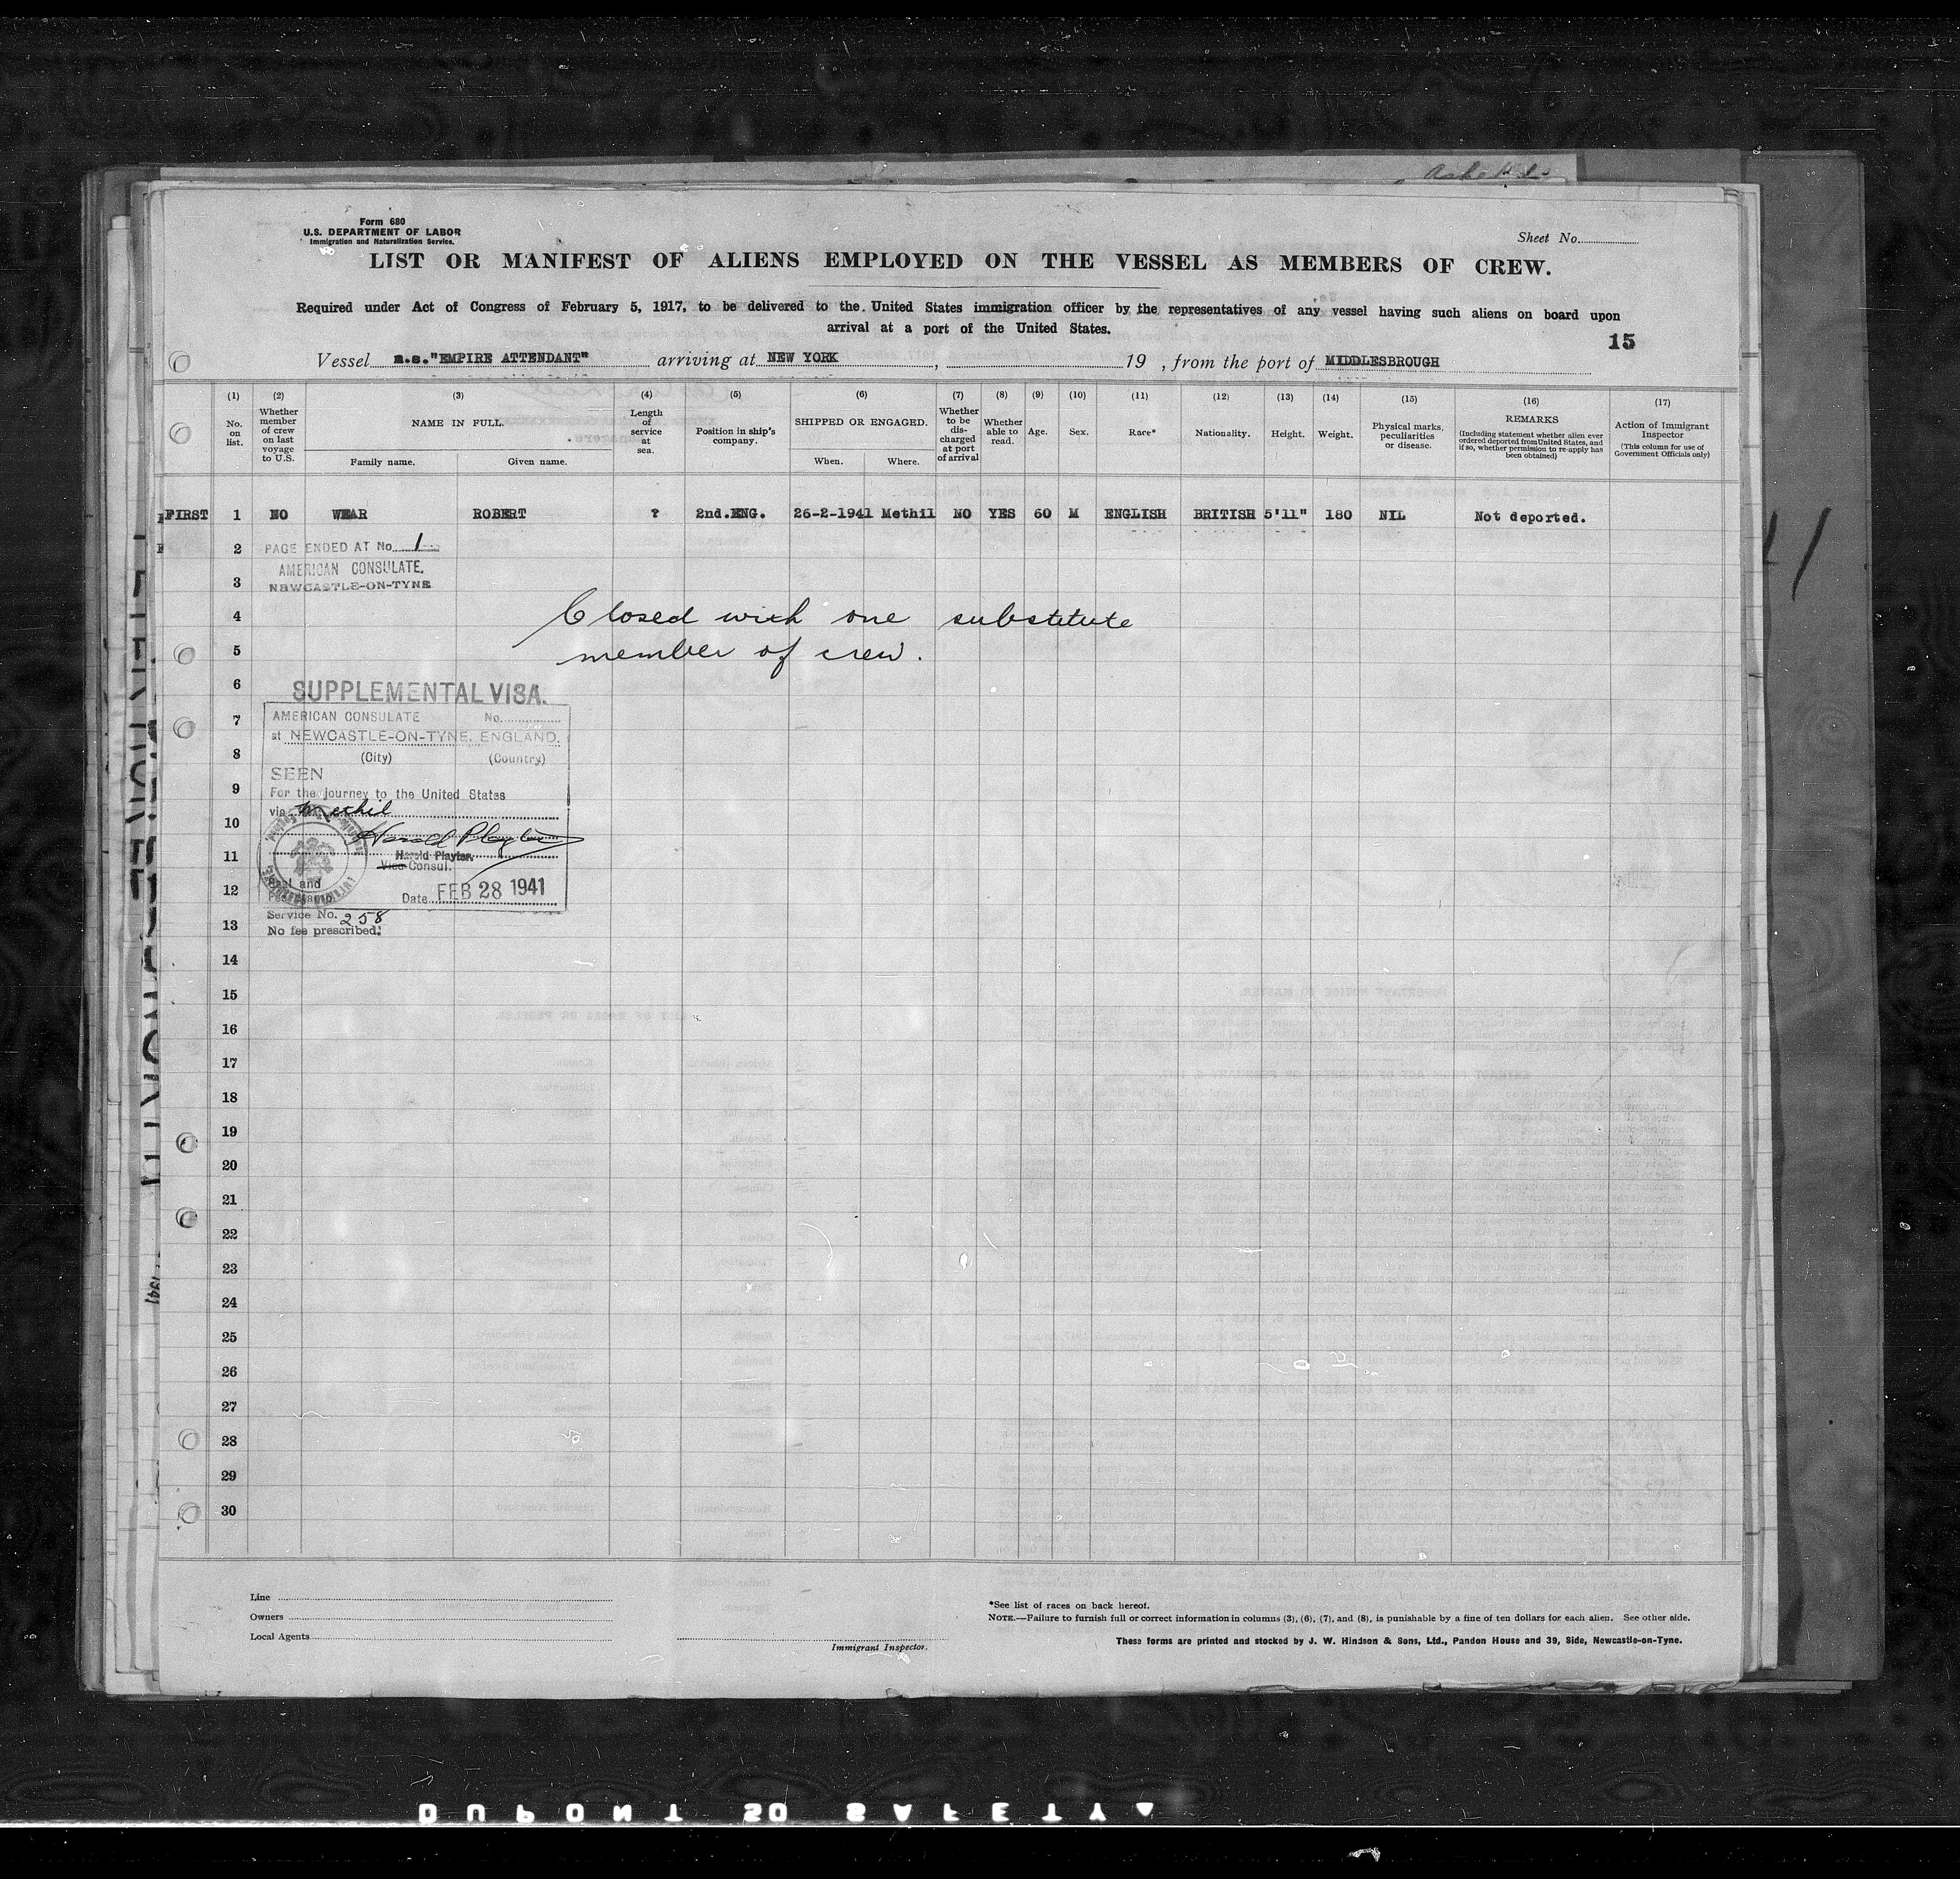 Form 680
U.S. DEPARTMENT OF LABOR
Immigration and Naturalization Service.
Sheet No.
LIST OR MANIFEST OF ALIENS EMPLOYED ON THE VESSEL AS MEMBERS OF CREW.
Required under Act of Congress of February 5, 1917, to be delivered to the United States immigration officer by the representatives of any vessel having such aliens on board upon
arrival at a port of the United States.
15
Vessel m.s."EMPIRE ATTENDANT" arriving at NEW YORK , 19 , from the port of MIDDLESBROUGH
(1) (2) (3) (4) (5) (6) (7) (8) (9) (10) (11) (12) (13) (14) (15) (16) (17)
No. on list.
Whether member of crew on last voyage to U.S.
NAME IN FULL.
Family name. Given name.
Length of service at sea.
Position in ship's company.
SHIPPED OR ENGAGED.
When. Where.
Whether to be discharged at port of arrival
Whether able to read.
Age.
Sex.
Race*
Nationality.
Height.
Weight.
Physical marks, peculiarities or disease.
REMARKS
(Including statement whether alien ever ordered deported from United States, and if so, whether permission to re-apply has been obtained)
Action of Immigrant Inspector
(This column for use of Government Officials only)
FIRST 1 NO WEAR ROBERT ? 2nd.ENG. 26-2-1941 Methil NO YES 60 M ENGLISH BRITISH 5'11" 180 NIL Not deported.
2 PAGE ENDED AT No. 1
AMERICAN CONSULATE.
3 NEWCASTLE-ON-TYNE
4 Closed with one substitute
5 member of crew.
6 SUPPLEMENTAL VISA.
7 AMERICAN CONSULATE No.
at NEWCASTLE-ON-TYNE, ENGLAND.
8 (City) (Country)
SEEN
9 For the journey to the United States
via Methil
10 Harold Playter
11 Harold Playter,
Vice Consul.
Seal and
12 Date FEB 28 1941
Service No. 258
13 No fee prescribed.
14
15
16
17
18
19
20
21
22
23
24
25
26
27
28
29
30
Line
Owners
Local Agents
Immigrant Inspector.
*See list of races on back hereof.
NOTE.—Failure to furnish full or correct information in columns (3), (6), (7), and (8), is punishable by a fine of ten dollars for each alien. See other side.
These forms are printed and stocked by J. W. Hindson & Sons, Ltd., Pandon House and 39, Side, Newcastle-on-Tyne.
DUPONT 20 SAFETY